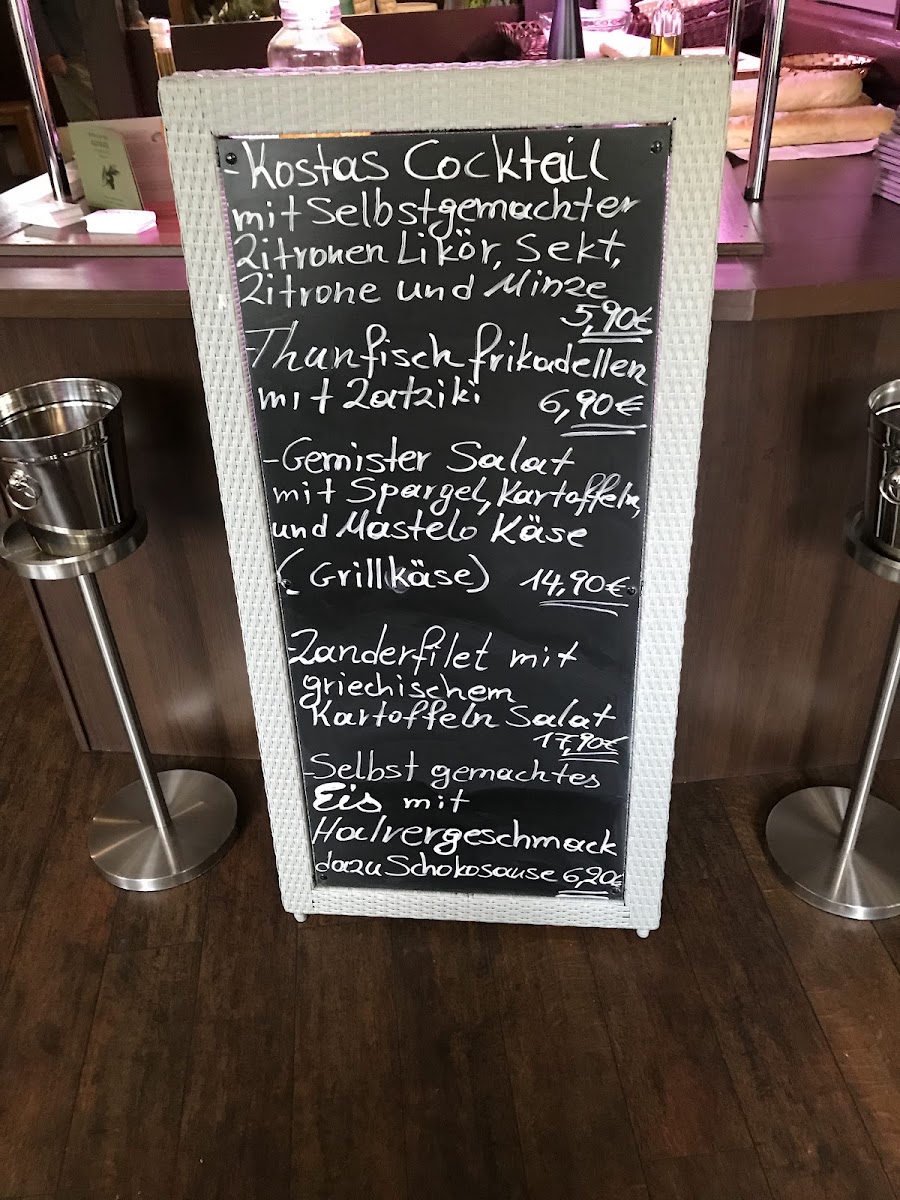 - Kostas Cocktail
mit Selbstgemachter
Zitronen Likör, Sekt,
Zitrone und Minze
5,90€
Thunfisch frikadellen
mit Zatziki
6,90€
- Gemister Salat
mit Spargel, Kartoffeln,
und Mastelo Käse
(Grillkäse) 14,90€
- Zanderfilet mit
griechischem
Kartoffeln Salat
17,90€
- Selbst gemachtes
Eis mit
Halvergeschmack
dazu Schokosause 6,20€